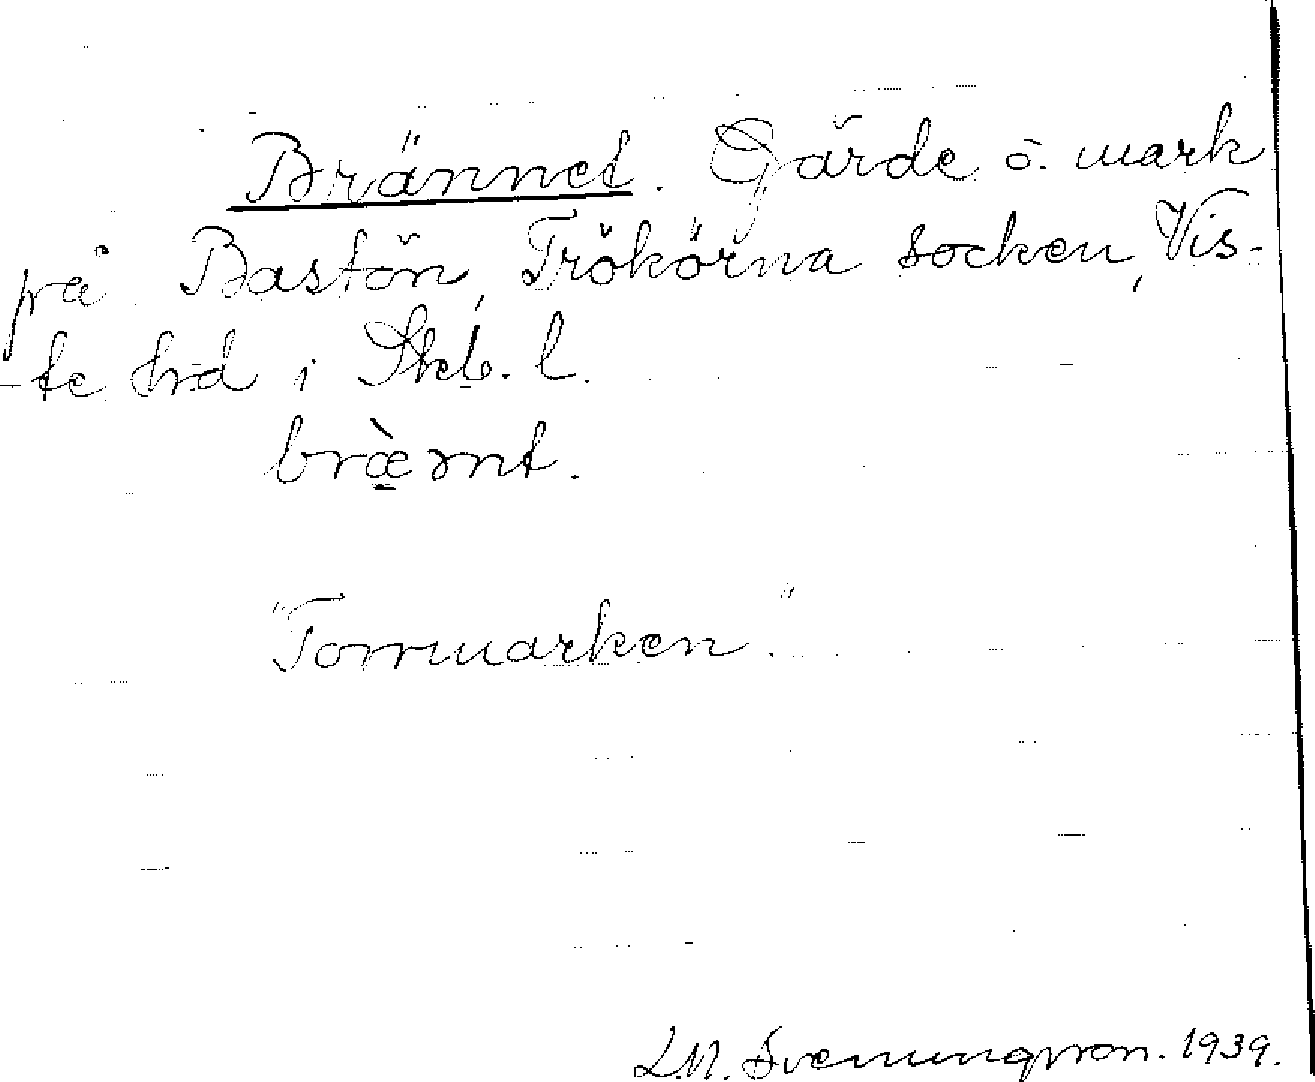 Brännet. Gärde o. mark
på Bastön, Trökörna socken, Vis-
te hd i Skb. l.
bræ̀rnt.
"Torrmarken".
L.M. Svenungsson. 1939.